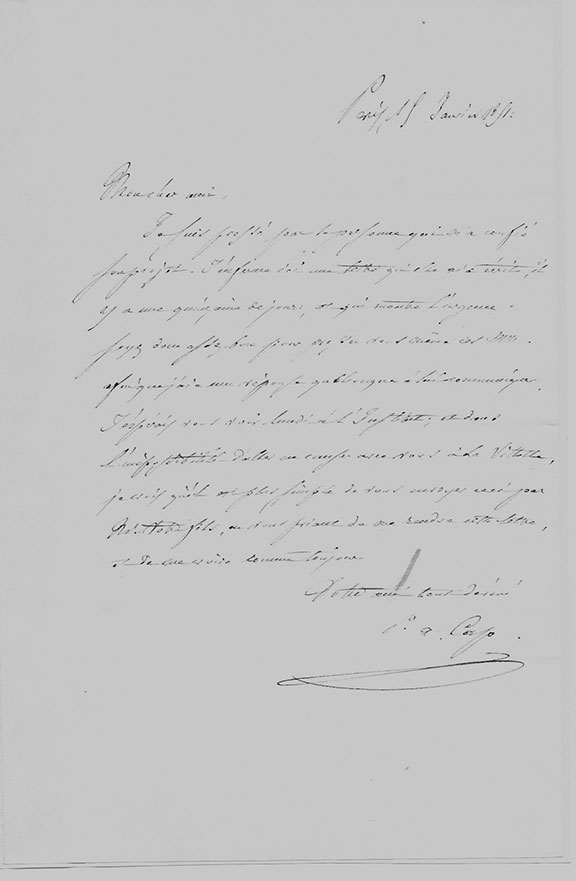 Paris, 15 Janvier 185
Mon cher ami,
Je suis pressé par la personne qui m'a confié
son projet. J'enferme ici une lettre qu'elle m'a écrite, il
y a une quinzaine de jours, et qui montre l'urgence.
Soyez donc assez bon pour presser vous même ces Mrs.
afin que j'aie une réponse quelconque à lui communiquer.
J'espérais vous voir lundi à l'Institut; et dans
l'impossibilité d'aller en causer avec vous à la Villette,
je crois qu'il est plus simple de vous envoyer ceci par
fils, en vous priant de me rendre cette lettre,
et de me croire comme toujours
Votre ami tout dévoué
P. A.